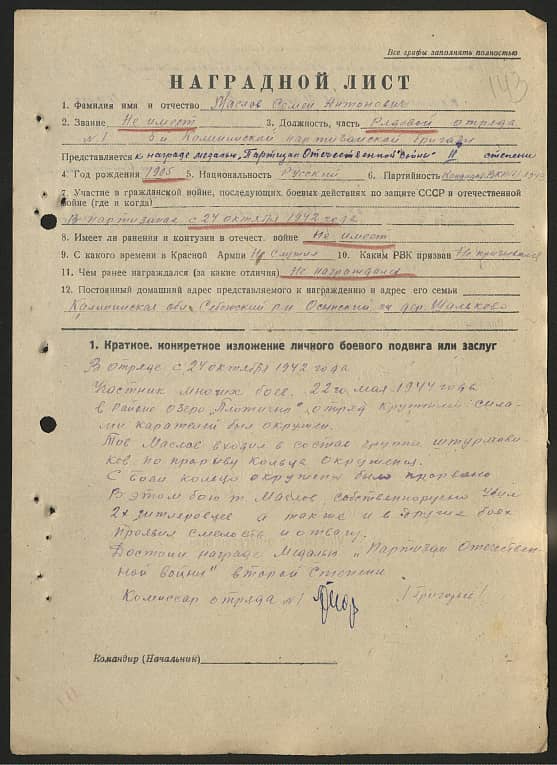 Все графы заполнять полностью
143
НАГРАДНОЙ ЛИСТ
1. Фамилия имя и отчество Маслов Семен Антонович
2. Звание Не имеет 3. Должность, часть Рядовой отряда
№1 5й Калининской партизанской бригады
Представляется к награде медалью „Партизан Отечественной войны" II степени
4. Год рождения 1905 5. Национальность Русский 6. Партийность Кандидат ВКП(б)
7. Участие в гражлянской войне, последующих боевых действиях по защите СССР и отечественной
войне (где и когда)
В партизанах с 24 октября 1942 года
8. Имеет ли ранения и контузии в отечест. войне Не имеет
9. С какого времени в Красной Армии Не служил 10. Каким РВК призван Не призывался
11. Чем ранее награждался (за какие отличия) Не награждался
12. Постоянный домашний адрес представляемого к награждению и адрес его семьи
Калининская обл. Себежский р-н Осынский дер.
1. Краткое, конкретное изложение личного боевого подвига или заслуг
В отряде с 24 октября 1942 года
Участник многих боев. 22го мая 1944 года
в районе озеро отряд крупными сила-
ми карателей был окружен.
Тов Маслов входил в состав группы штурмови-
ков по прорыву кольца окружения.
С боем кольцо окружения было прорвано
В этом бою т. Маслов собственноручно убил
2х гитлеровцев а также и в других боях
проявил смелость и отвагу.
Достоин награде Медалью „Партизан Отечествен-
ной войны" второй степени
Комиссар отряда №1 /Григорьев/
Командир (Начальник)